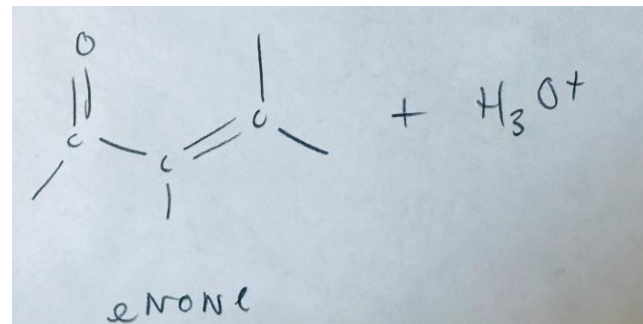 O
C
C
C
+ H3O+
eNONe